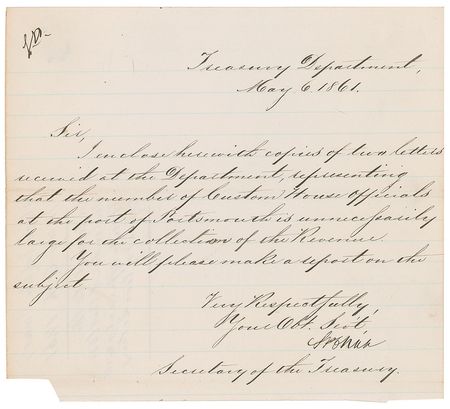 Treasury Department,
May 6. 1861.
Sir,
I enclose herewith copies of two letters
received at the Department, representing
that the number of Custom House Officials
at the port of Portsmouth is unnecessarily
large for the collection of the Revenue.
You will please make a report on the
subject.
Very Respectfully,
Your Obt. Sevt,
SPChase
Secretary of the Treasury.